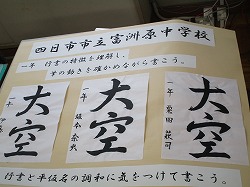 四日市市立富洲原中学校
一年 行書の特徴を理解し、
筆の動きを確かめながら書こう。
大空
一年
大空
一年
大空
一年
行書と平仮名の調和に気をつけて書こう。